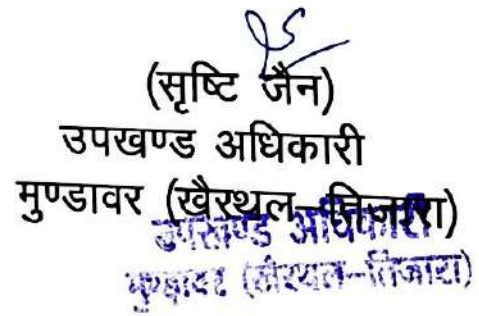 (सृष्टि जैन)
उपखण्ड अधिकारी
मुण्डावर (खैरथल–तिजारा)
उपखण्ड अधिकारी
मुण्डावर (खैरथल–तिजारा)